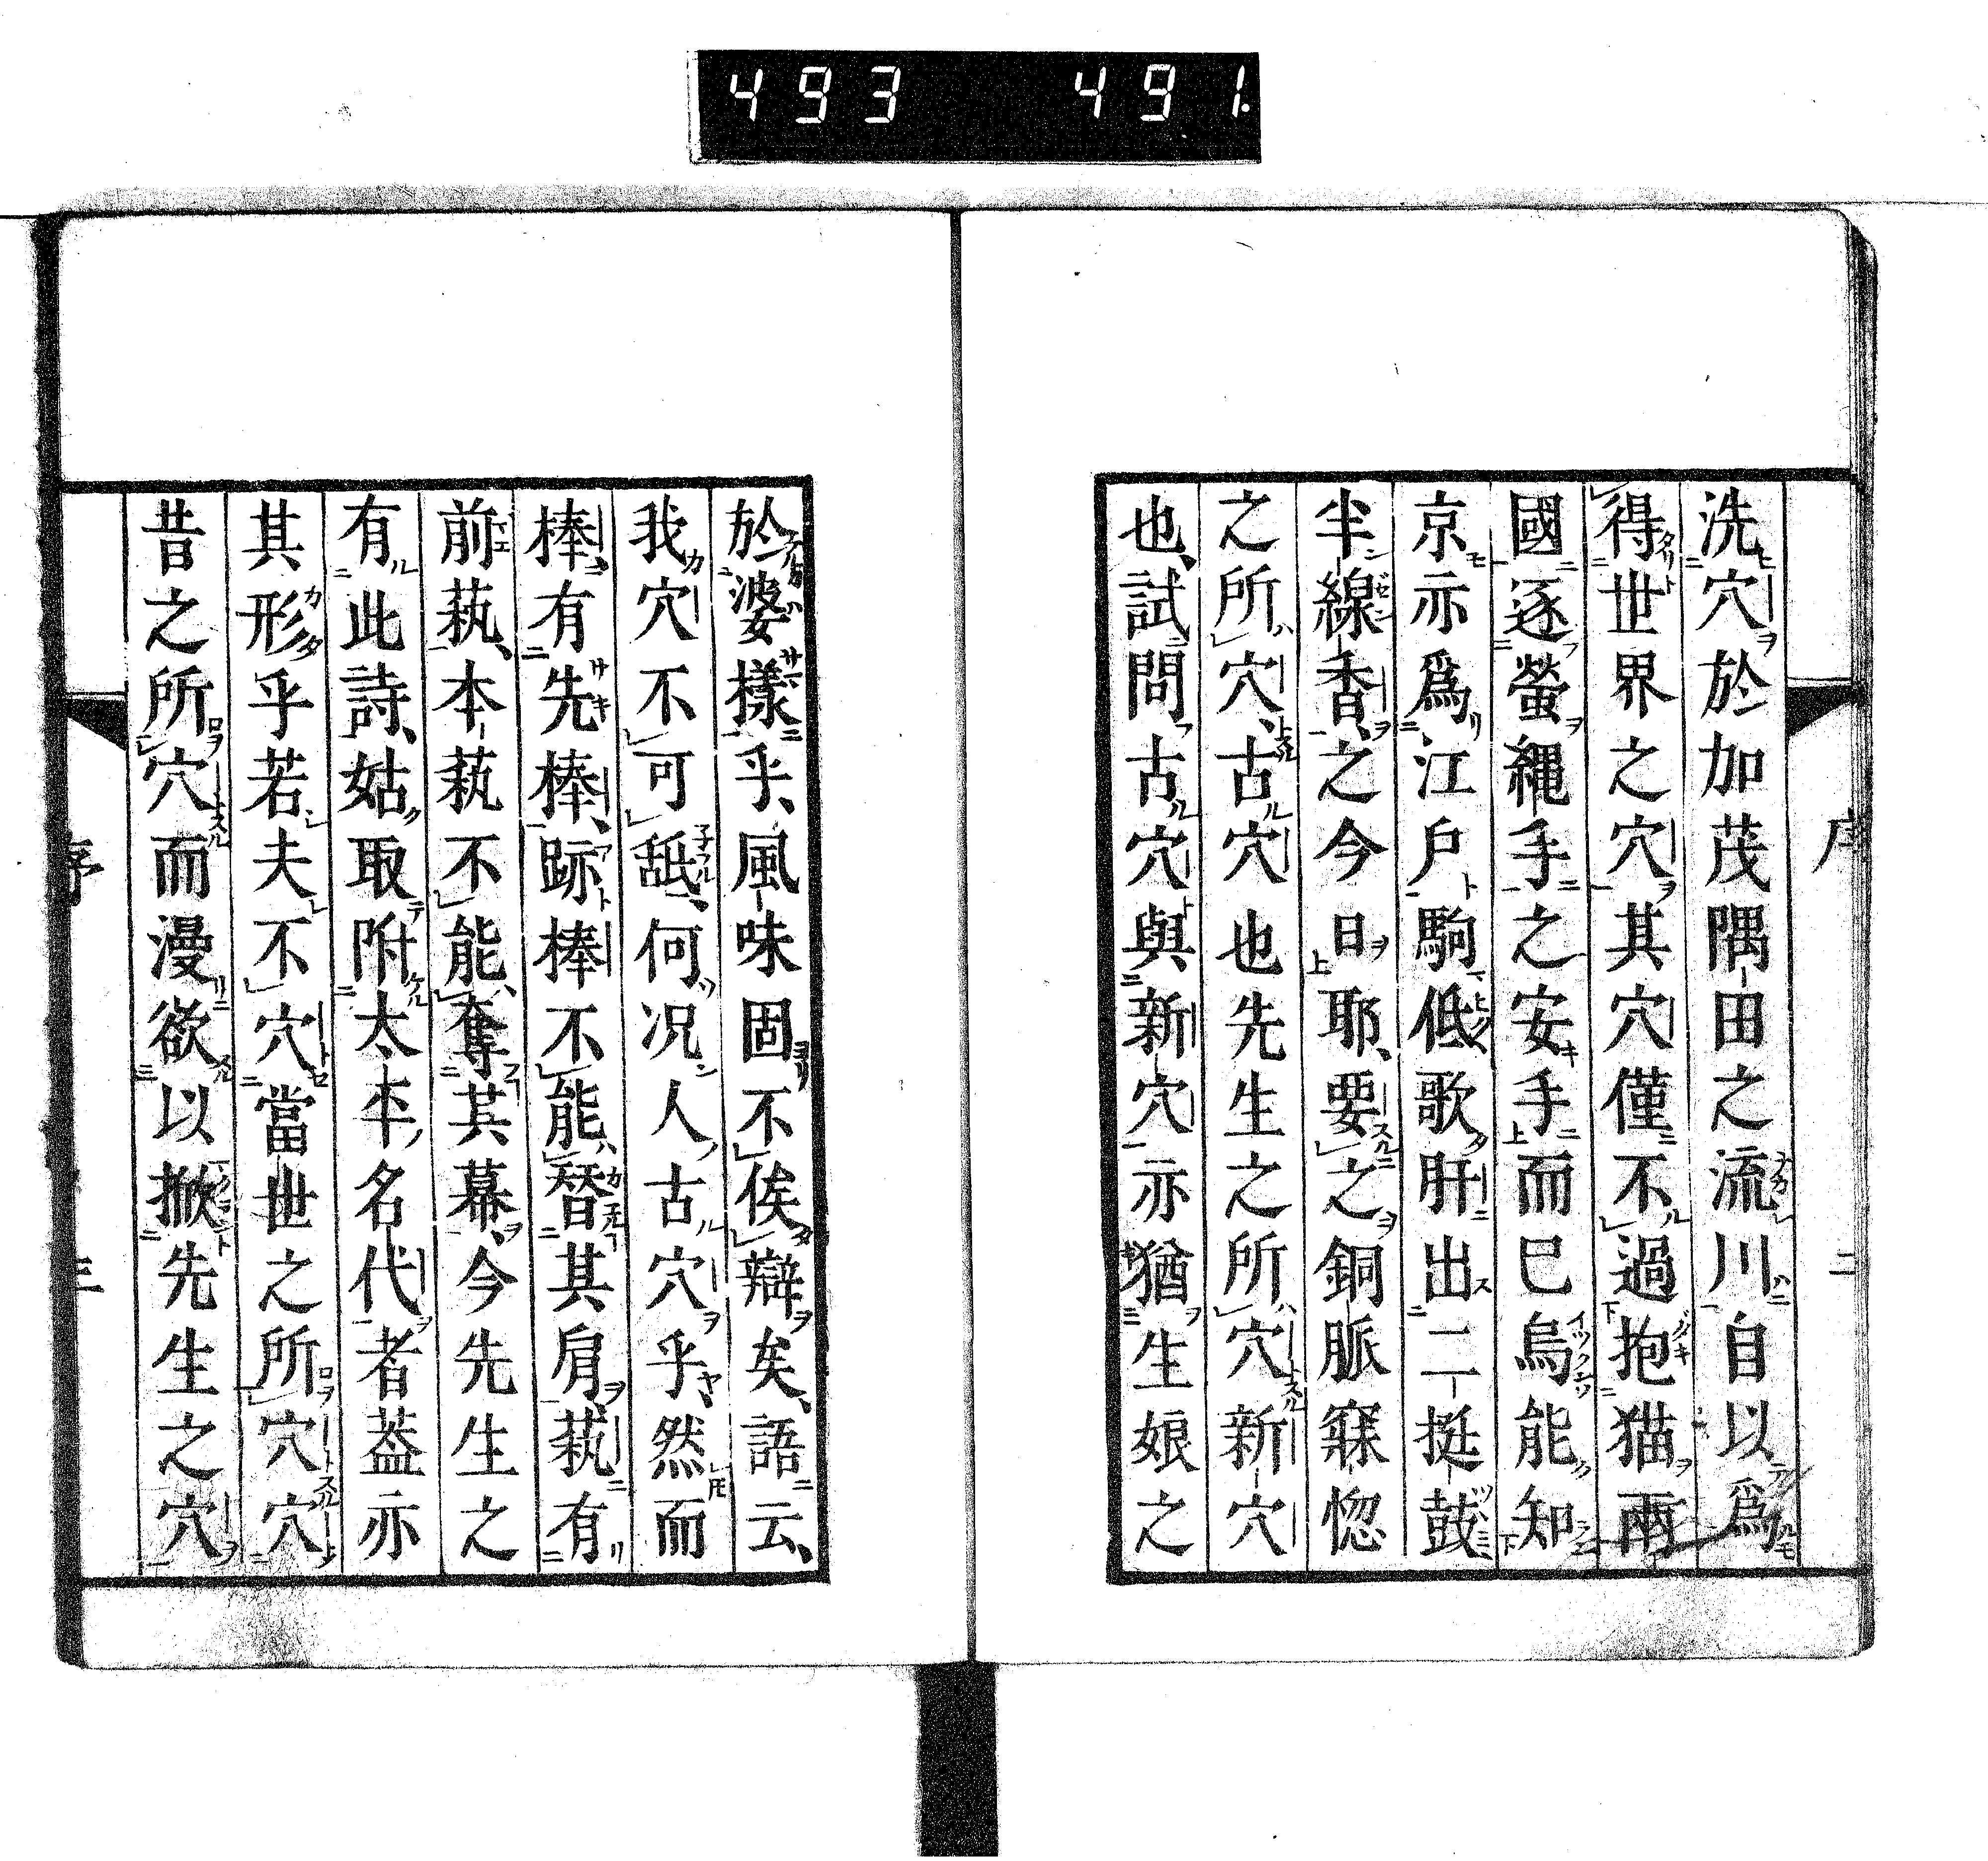 493 491.
序
二
洗穴於加茂隅田之流川自以爲
得世界之穴其穴僅不過抱猫兩
國逐螢繩手之安手而已烏能知
京亦爲江戸駒低歌肝出二挺鼓
半線香之今日耶要之銅脈寐惚
之所穴古穴也先生之所穴新穴
也試問古穴與新穴亦猶生娘之
於婆樣乎風味固不俟辯矣語云
我穴不可舐何况人古穴乎然而
棒有先棒跡棒不能替其肩蓺有
前蓺本蓺不能奪其幕今先生之
有此詩姑取附太平名代者葢亦
其形乎若夫不穴當世之所穴穴
昔之所穴而漫欲以掀先生之穴
序
三